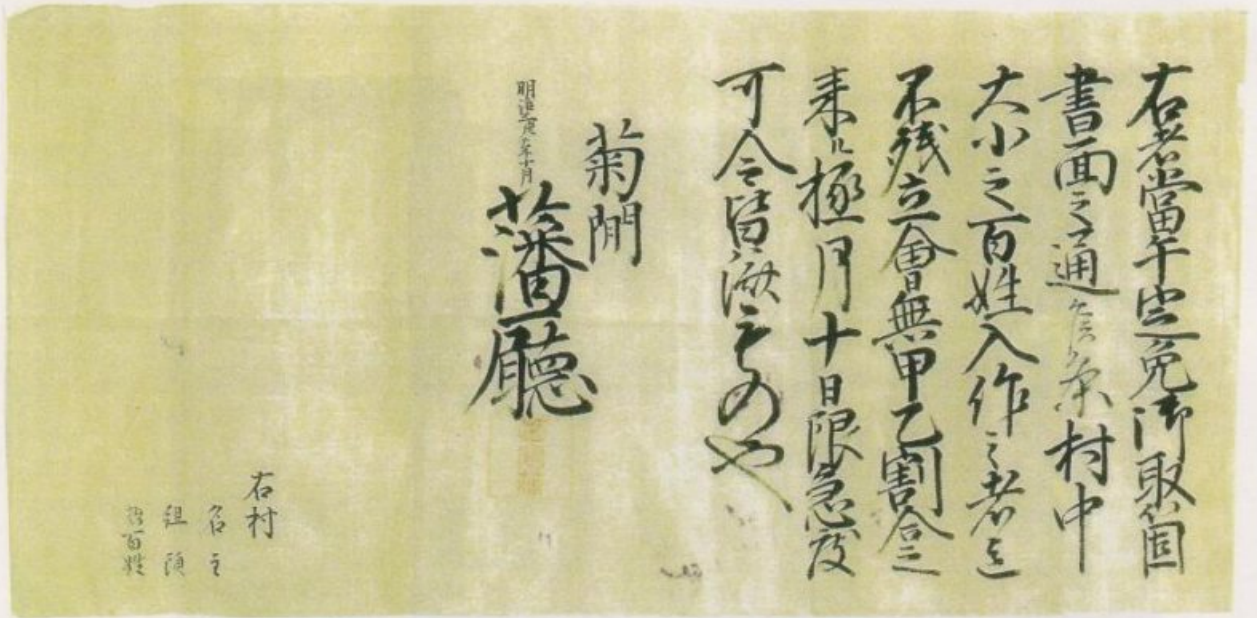 右者當午定免御取箇
書面之通候条村中
大小之百姓入作之者迄
不残立会無甲乙割合之
来ル極月十日限急度
可令皆済ものや
明治三庚午年十月
菊間
藩廳
右村
名主
組頭
惣百姓